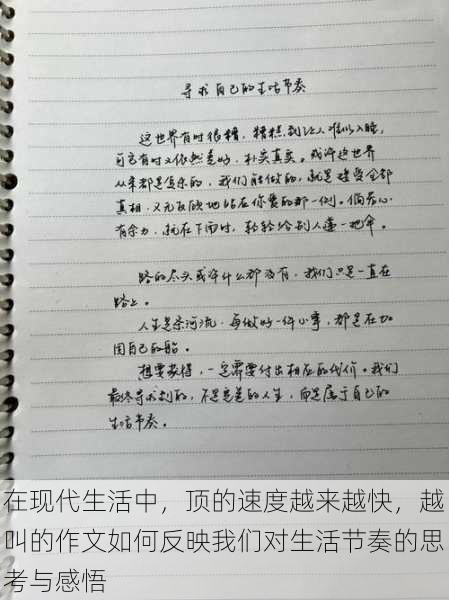 寻求自己的生活节奏
这世界有时很糟，糟糕到让人难以入睡，
可它有时又依然美好，朴实真实。或许这世界
从来都是复杂的，我们能做的，就是接受全部
真相，又无反顾地站在你爱的那一侧。倘若心
有余力，就在下雨时，轻轻给别人递一把伞。
路的尽头或许什么都没有，我们只是一直在
路上。
人生是条河流，每做好一件小事，都是在加
固自己的船。
想要获得，一定需要付出相应的代价。我们
最终寻求到的，不是完美的人生，而是属于自己的
生活节奏。
在现代生活中，顶的速度越来越快，越
叫的作文如何反映我们对生活节奏的思
考与感悟